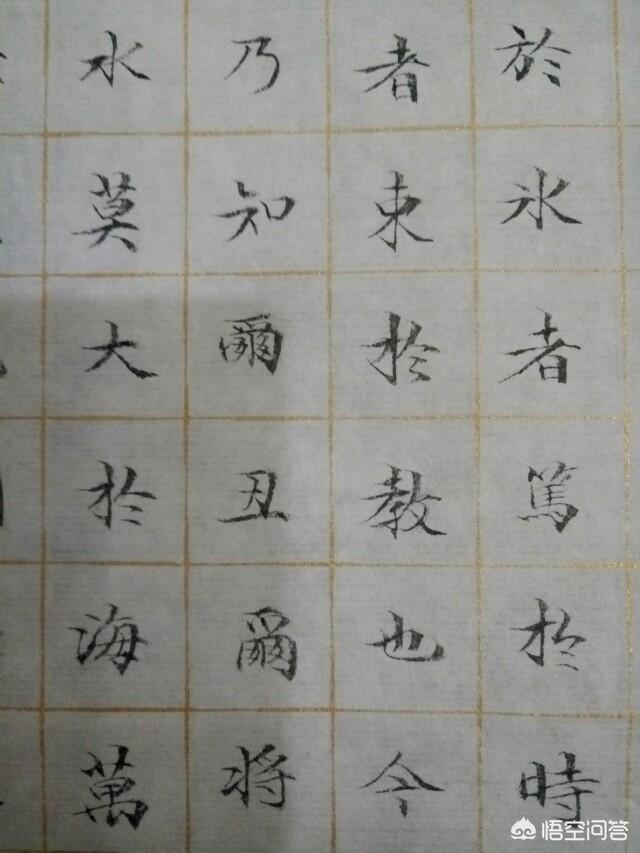 於氷者篤於時
者束於教也今
乃知爾丑爾将
水莫大於海萬
悟空问答